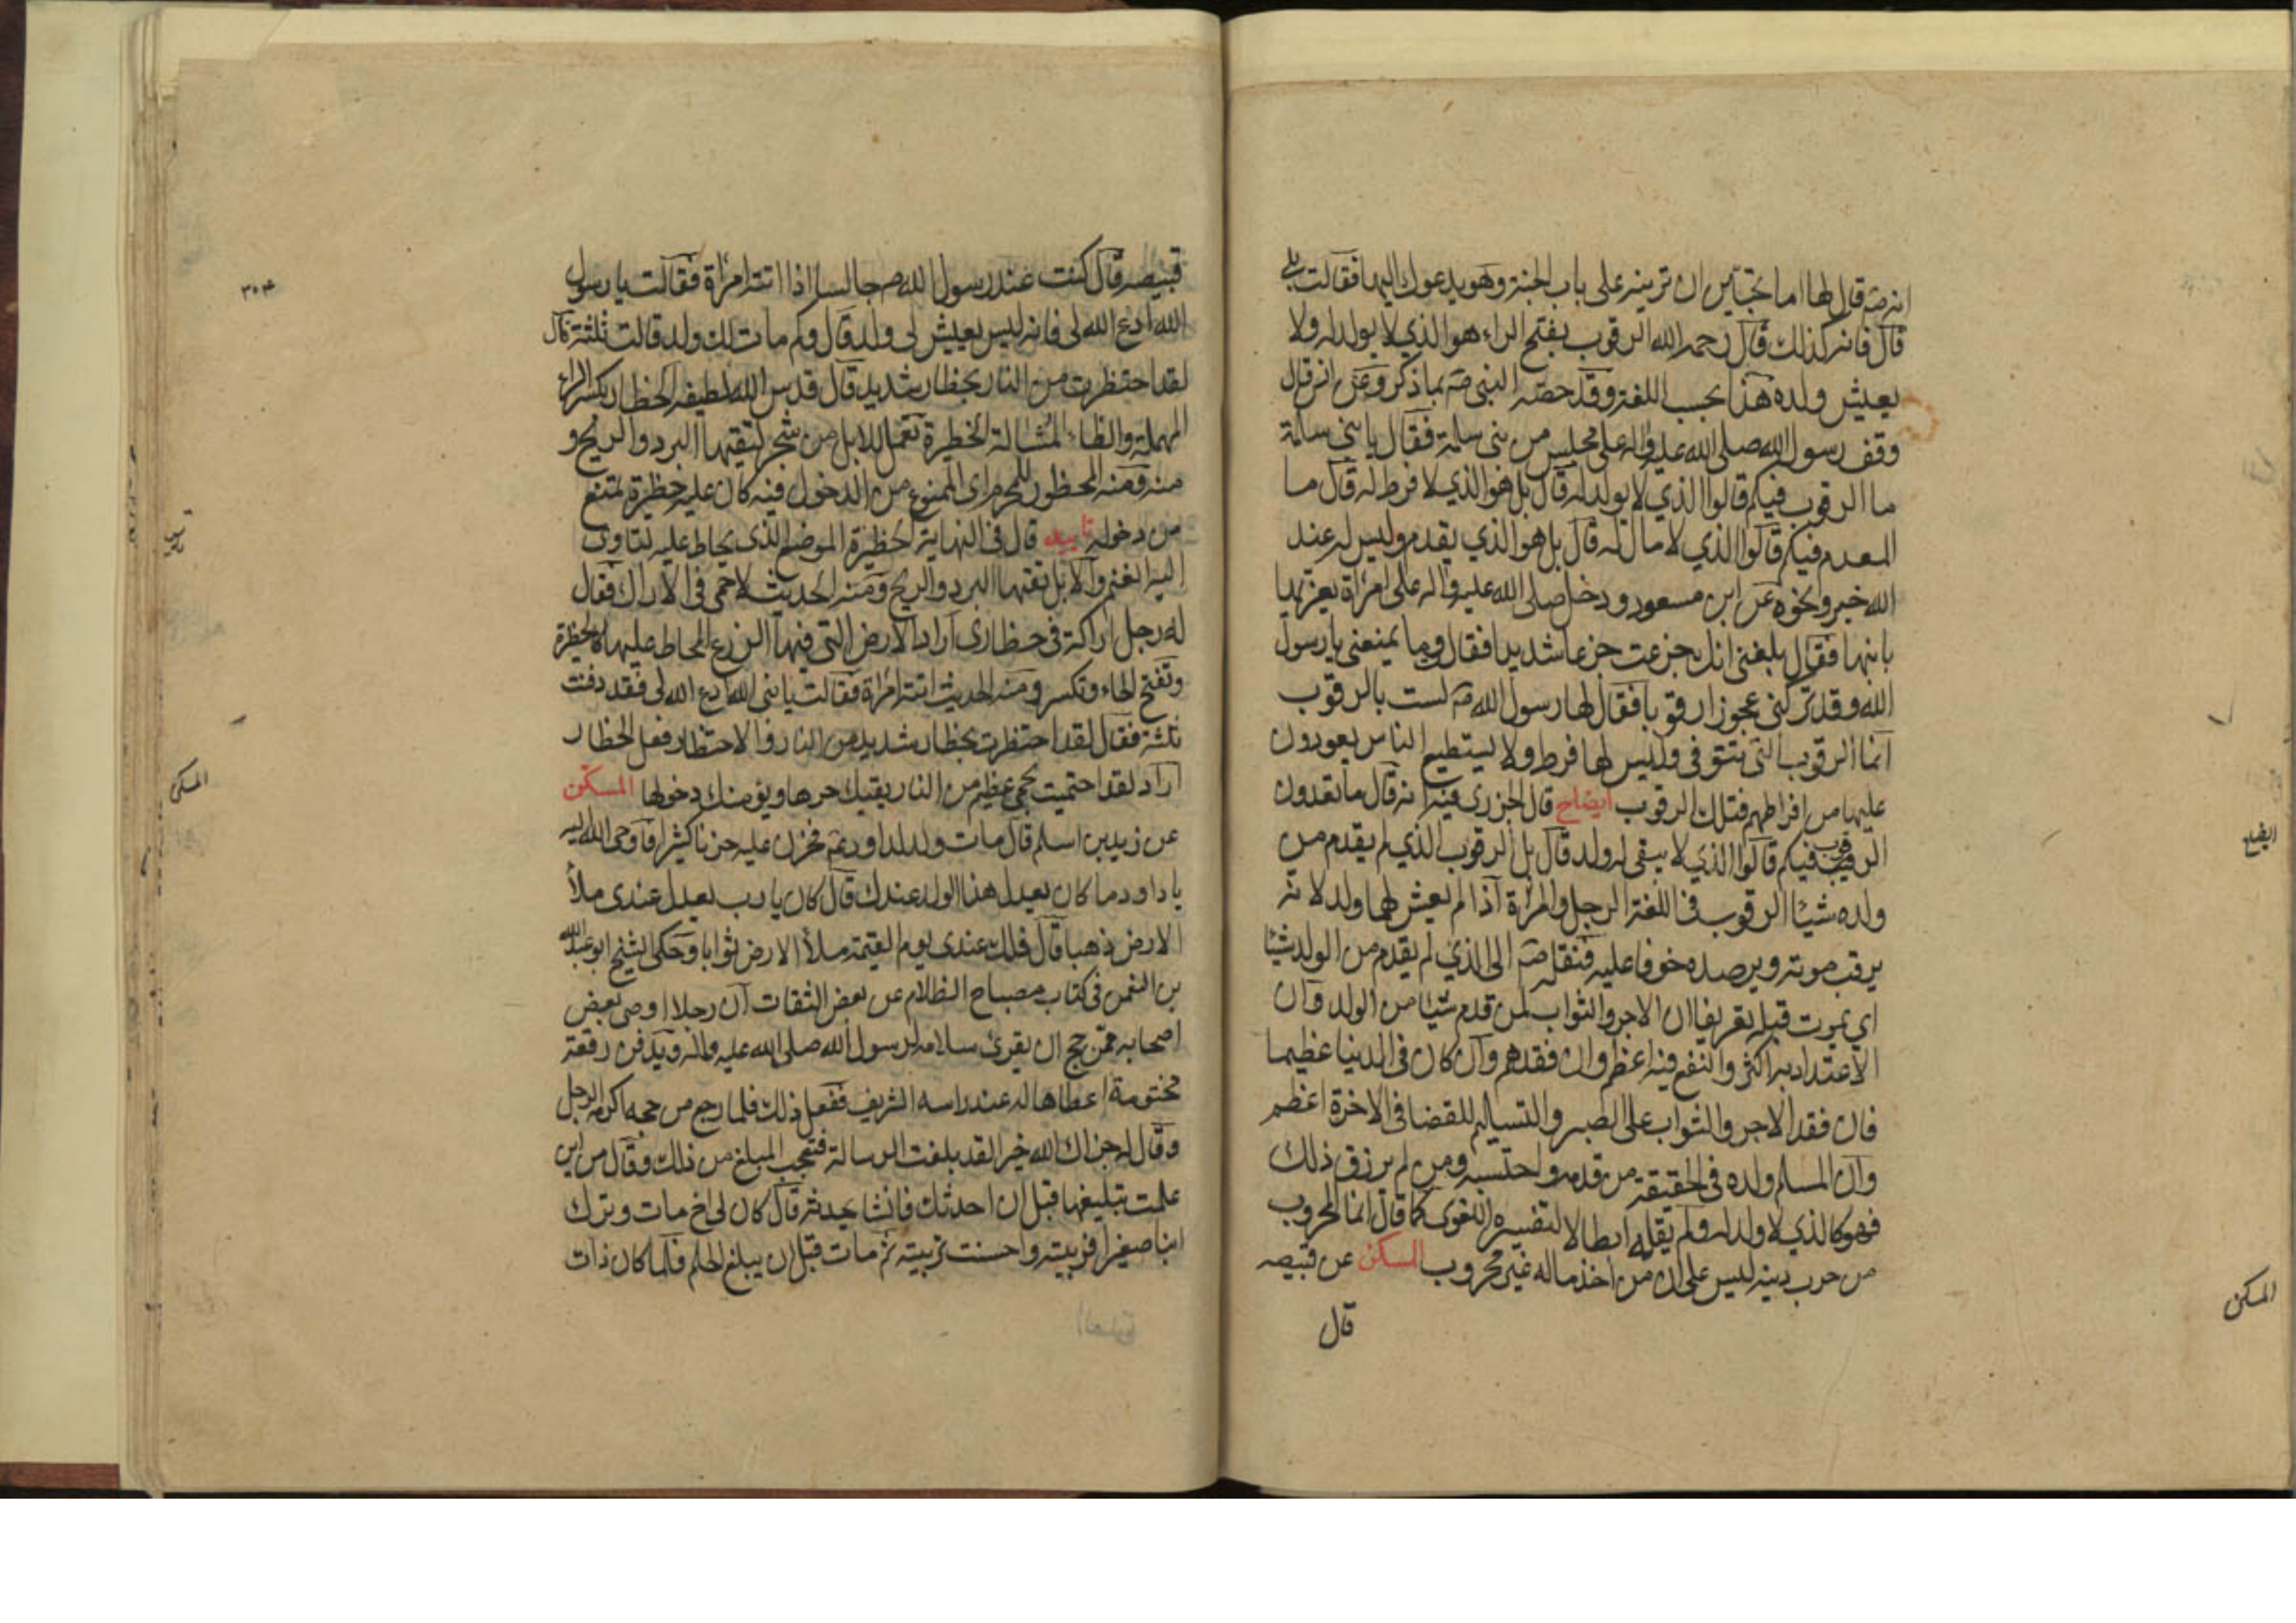 انه صه قال لها اما تحبين ان ترينه على باب الجنة وهو يدعوك اليها فقالت بلى
قال فانه كذلك قال رحمه الله الرقوب بفتح الراء هو الذي لا يولد له ولا
يعيش ولده هذا بحسب اللغة وقد خصه النبي صه بما ذكر وعن انس قال
وقف رسول الله صلى الله عليه واله على مجلس من بني سلمة فقال يا بني سلمة
ما الرقوب فيكم قالوا الذي لا يولد له قال بل هو الذي لا فرط له قال ما
المعدم فيكم قالوا الذي لا مال له قال بل هو الذي يقدم وليس له عند
الله خير ونحوه عن ابن مسعود ودخل صلى الله عليه واله على امرأة يعزيها
بابنها فقال بلغني انك جزعت جزعا شديدا فقال وما يمنعني يا رسول
الله وقد تركني عجوزا رقوبا فقال لها رسول الله صه لست بالرقوب
انما الرقوب التي تتوفى وليس لها فرط ولا يستطيع الناس يعودون
عليها من افراطهم فتلك الرقوب ايضاح قال الجزري فيه انه قال ما تعدون
الرقوب فيكم قالوا الذي لا يبقى له ولد قال بل الرقوب الذي لم يقدم من
ولده شيئا الرقوب في اللغة الرجل والمرأة اذا لم يعش لهما ولد لانه
يرقب موته ويرصده خوفا عليه فنقله صه الى الذي لم يقدم من الولد شيئا
اي يموت قبله تعريفا ان الاجر والثواب لمن قدم شيئا من الولد وان
الاعتداد به اكثر والنفع فيه اعظم وان فقدهم وان كان في الدنيا عظيما
فان فقد الاجر والثواب على الصبر والتسليم للقضا في الاخرة اعظم
وان المسلم ولده في الحقيقة من قدمه واحتسبه ومن لم يرزق ذلك
فهو كالذي لا ولد له ولم يقله ابطالا لتفسيره اللغوي كما قال انما المحروب
من حرب دينه ليس على ان من اخذ ماله غير محروب المسكن عن قبيصه
قال
ايضاح
المسكن
قبيصه قال كنت عند رسول الله صه جالسا اذا اتته امرأة فقالت يا رسول
الله ادع الله لي فانه ليس يعيش لي ولد قال وكم مات لك ولد قالت ثلثة قال
لقد احتظرت من النار بحظار شديد قال قدس الله لطيفه الحظار بكسر الراء
المهملة والظاء المشالة الحظيرة تعمل للابل من شجر لتقيها البرد والريح و
منه ومنه المحظور للمحرم اي الممنوع من الدخول فيه كان عليه حظيرة تمنع
من دخوله تاييد قال في النهاية الحظيرة الموضع الذي يحاط عليه لتاوى
اليه الغنم والابل تقيها البرد والريح ومنه الحديث لا حمى في الاراك فقال
له رجل اراكة في حظاري اراد الارض التي فيها الزرع المحاط عليها كالحظيرة
وتفتح الحاء وتكسر ومنه الحديث اتته امرأة فقالت يا نبي الله ادع الله لي فقد دفنت
ثلثة فقال لقد احتظرت بحظار شديد من النار والاحتظار فعل الحظار
اراد لقد احتميت بحمى عظيم من النار يقيك حرها ويؤمنك دخولها المسكن
عن زيد بن اسلم قال مات ولد لداود ع فحزن عليه حزنا كثيرا فاوحى الله اليه
يا داود ما كان يعدل هذا الولد عندك قال كان يا رب يعدل عندي ملأ
الارض ذهبا قال فلك عندي يوم القيمة ملأ الارض ثوابا وحكى الشيخ ابو عبد الله
بن النعمن في كتاب مصباح الظلام عن بعض الثقات ان رجلا اوصى بعض
اصحابه ممن حج ان يقرئ سلامه لرسول الله صلى الله عليه واله ويدفن رقعة
مختومة اعطاها له عند راسه الشريف ففعل ذلك فلما رجع من حجه اكرمه الرجل
وقال له جزاك الله خيرا لقد بلغت الرسالة فتعجب المبلغ من ذلك وقال من اين
علمت تبليغها قبل ان احدثك فانشا يحدثه قال كان لي اخ مات وترك
ابنا صغيرا فربيته واحسنت تربيته ثم مات قبل ان يبلغ الحلم فلما كان ذات
٣٠٣
المسكن